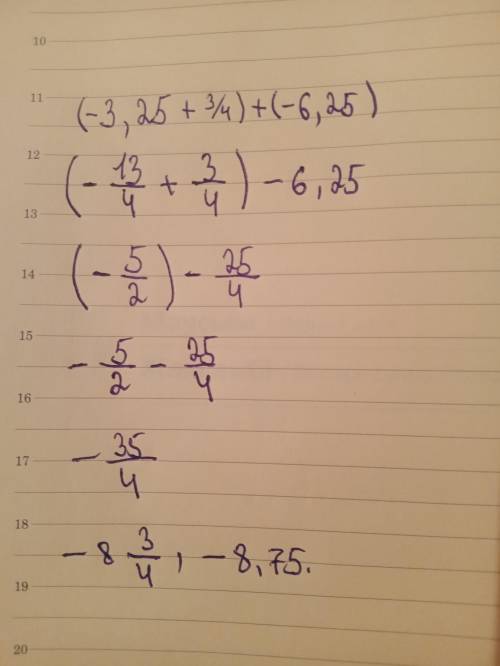 10
11 (-3,25 + 3/4) + (-6,25)
12 (- 13/4 + 3/4) - 6,25
13
14 (- 5/2) - 25/4
15
- 5/2 - 25/4
16
17 - 35/4
18
- 8 3/4, - 8,75.
19
20